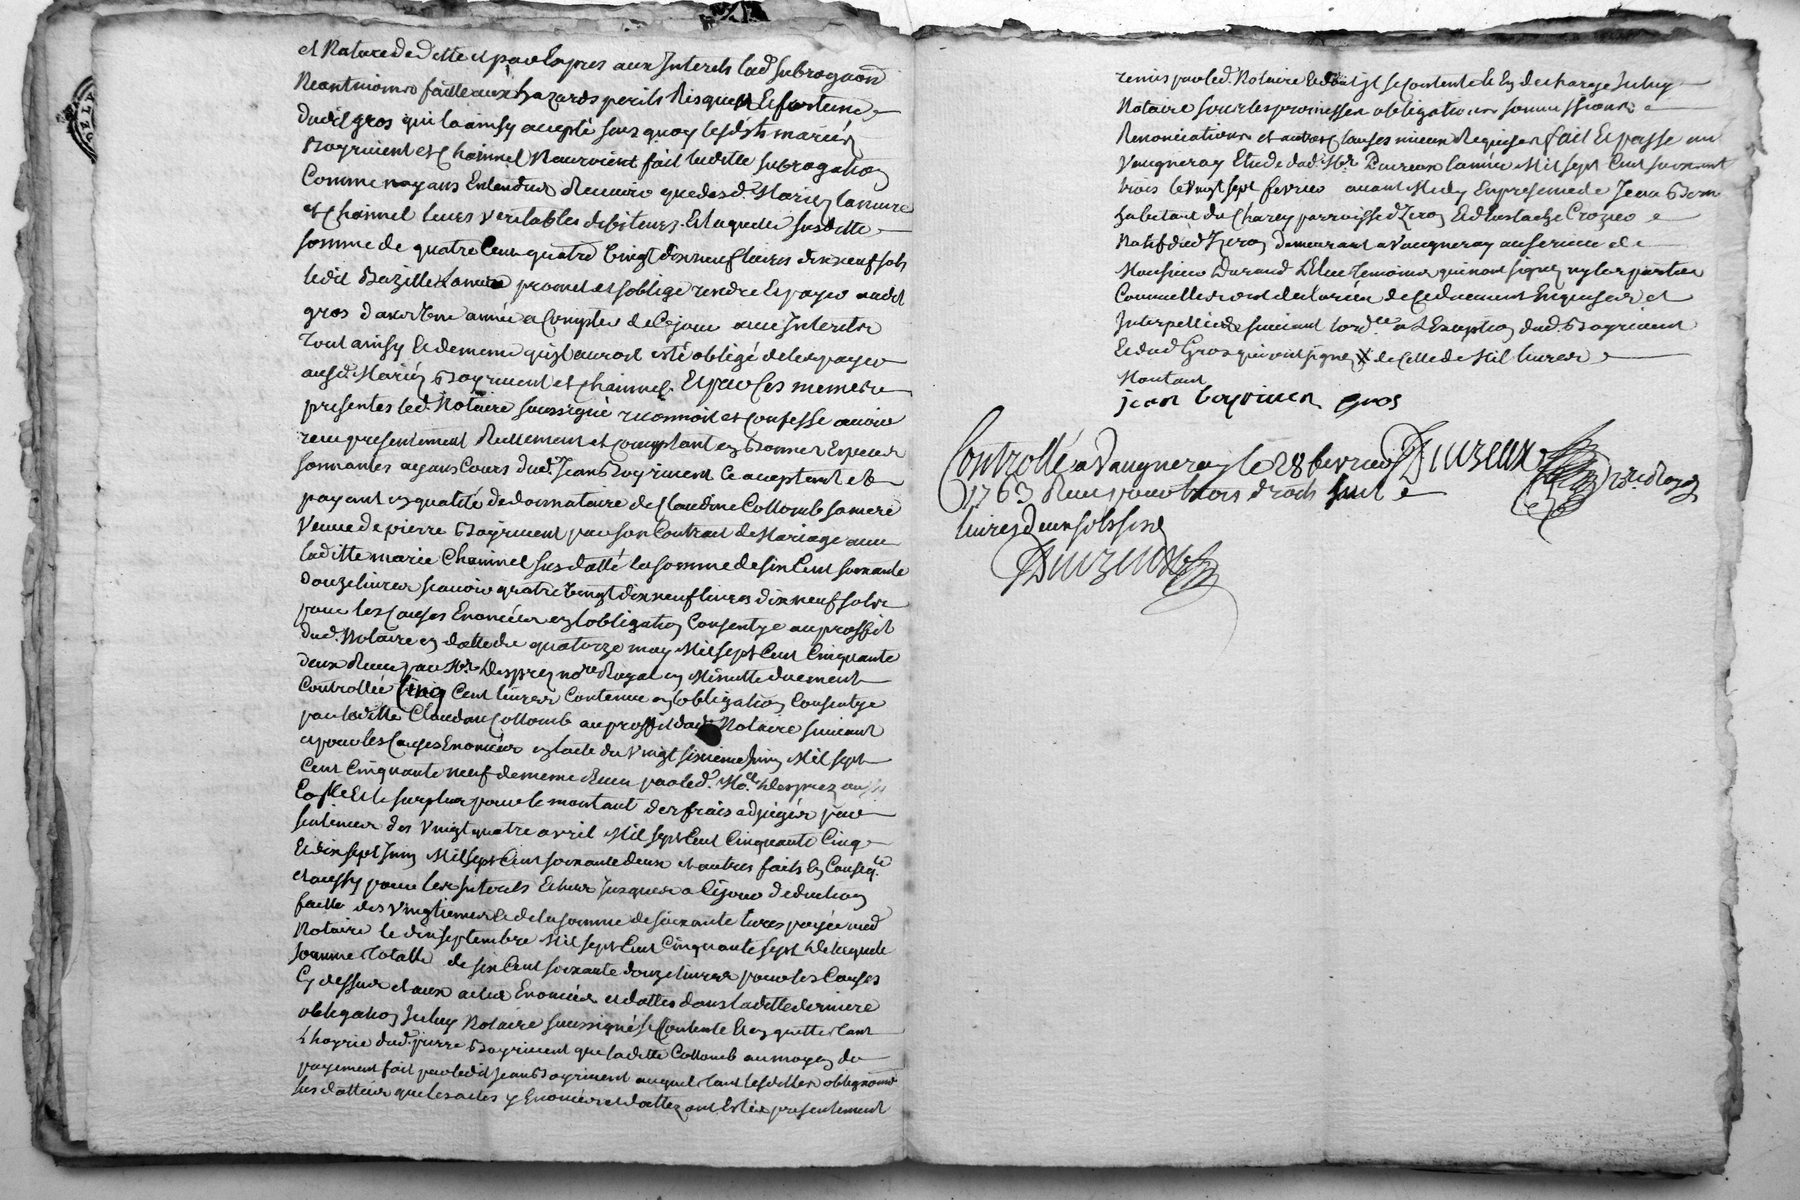 et Nature de dette et par Exprès aux Interets lad. subrogaon
Neantmoins faitte aux hazards perils Risques Et fortune
dudit gros qui la ainsy accepté sans quoy lesdits mariés
Boyriuent et Chainnel Nauroient fait laditte subrogation
Comme nayans Entendus Recevoir que desd. Mariés Lamure
et Chainnel leurs veritables debiteurs. Et laquelle susditte
somme de quatre Cent quatre vingt dix neuf livres dix neuf sols
ledit Bazille Lamure promet et soblige rendre Et payer audit
gros dans Une année a Compter de Ce jour avec Interets
Tout ainsy Et de meme quil auroit été obligé de les payer
ausd. Mariés Boyriuent et Chainnel. Et par Ces memes
presentes led. Notaire soussigné reconnoit et Confesse avoir
reçu presentement Reellement et Comptant en Bonnes Especes
sonnantes ayans Cours dud. Jean Boyriuent Ce acceptant et
payant en qualité de donnataire de Claudine Collomb sa mere
veuve de pierre Boyriuent par son Contrat de Mariage avec
laditte marie Chainnel susdatté la somme de six Cent soixante
douze livres scavoir quatre vingt dix neuf livres dix neuf sols
pour les Causes Enoncées en lobligation Consentye au proffit
dud. Notaire en datte du quatorze may Mil sept Cent Cinquante
deux Reçu par Me Desprez nore Royal en Minutte duement
Controllée Cinq Cent livres Contenue en lobligation Consentye
par laditte Claudine Collomb au proffit dud. Notaire suivant
et pour les Causes Enoncées en lacte du vingt sixieme Juin Mil sept
Cent Cinquante neuf de meme Recu par led. Me Desprez aussy
Colle Et le surplus pour le montant des frais adjugés par
sentences des vingt quatre avril Mil sept Cent Cinquante Cinq
Et dix sept Juin Mil sept Cent soixante deux et autres faits En Conseq.ce
et aussy pour les Interets Echus Jusques a Ce jour deduction
faitte des vingtiemes Et de la somme de soixante livres payée aud.
Notaire le dix septembre Mil sept Cent Cinquante sept de laquelle
somme Totalle de six Cent soixante douze livres pour les Causes
Cy dessus et aux actes Enoncées et dattes dans laditte derniere
obligation Iceluy Notaire soussigné se Contente Et en quitte tant
Lhoyrie dud. pierre Boyriuent que laditte Collomb au moyen du
payement fait par ledit Jean Boyriuent auquel tant lesdittes obligaons
susdattées que les actes y Enoncées et dattez ont Eté presentement
remis par led. Notaire Et dont Il se Contente Et En decharge Iceluy
Notaire sous les promesses obligations soumissions
Renonciations et autres Clauses mieux Requises fait Et passé au
vaugneray Etude dud. Me Dauzeux lannée Mil sept Cent soixante
trois le vingt sept fevrier avant Midy En presence de Jean
habitant du Charey parroisse dizeron Et dEustache Crozier
Natif dud. Izeron demeurant a vaugneray au service de
Monsieur Durand LElu Temoins qui nont signé ny les parties
Comme elles ont declarées de Ce duement Enquises et
Interpellées suivant lord.ce a LException dud. Boyriuent
Et dud. Gros qui ont signé X de Celle de Mil livres
Montant
jean boyriuen gros
Controllé a Vaugneray le 28 fevrier
1763 Reçu pour trois droits sept
livres deux sols six d